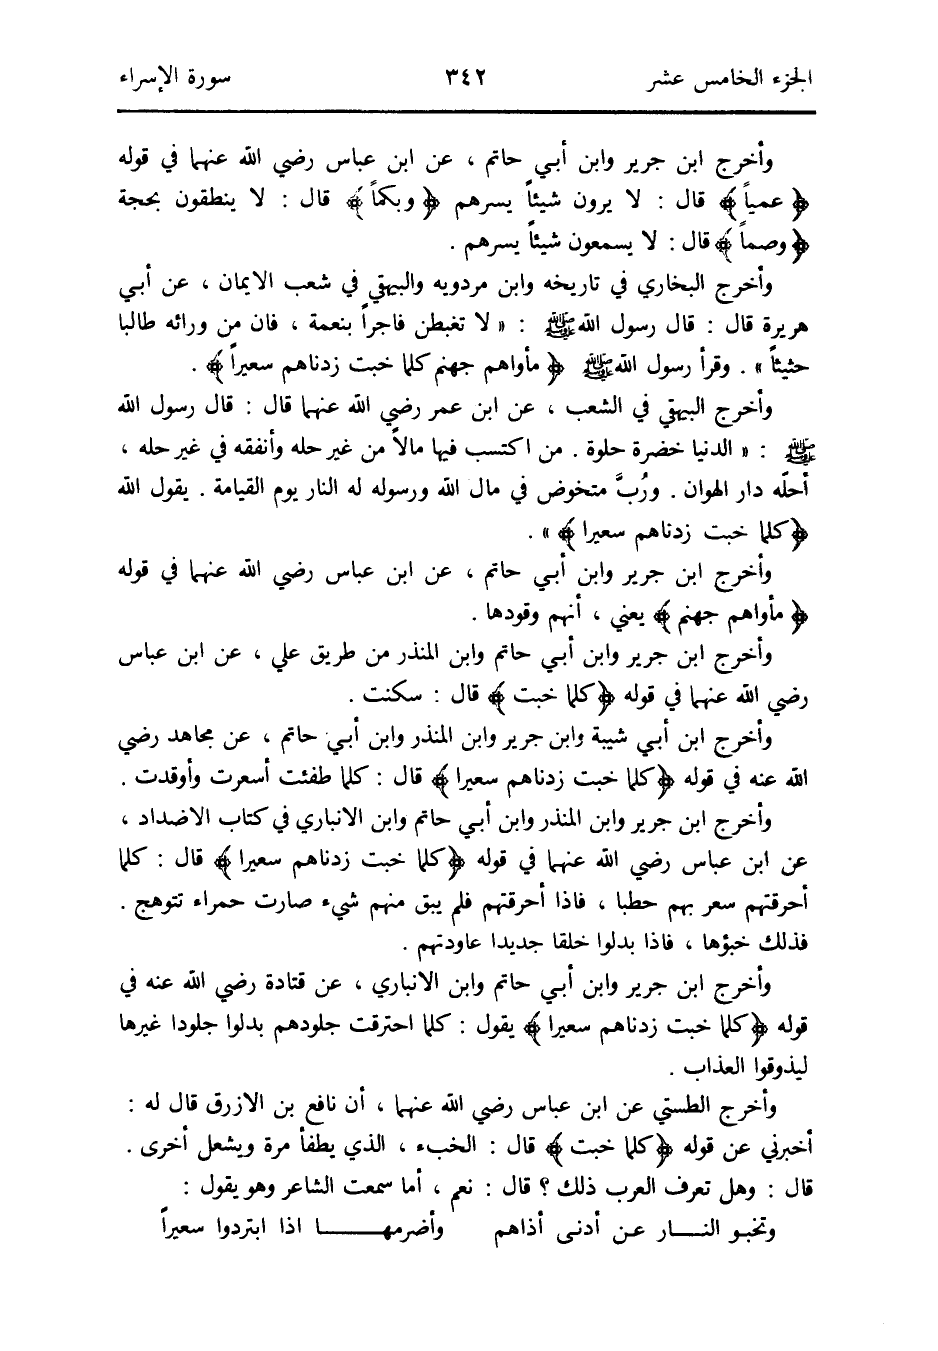 الجزء الخامس عشر ٣٤٢ سورة الإسراء
وأخرج ابن جرير وابن أبي حاتم ، عن ابن عباس رضي الله عنهما في قوله
﴿ عمياً ﴾ قال : لا يرون شيئاً يسرهم ﴿ وبكماً ﴾ قال : لا ينطقون بحجة
﴿ وصماً ﴾ قال : لا يسمعون شيئاً يسرهم .
وأخرج البخاري في تاريخه وابن مردويه والبيهقي في شعب الايمان ، عن أبي
هريرة قال : قال رسول الله ﷺ : « لا تغبطن فاجراً بنعمة ، فان من ورائه طالبا
حثيثاً » . وقرأ رسول الله ﷺ ﴿ مأواهم جهنم كلما خبت زدناهم سعيراً ﴾ .
وأخرج البيهقي في الشعب ، عن ابن عمر رضي الله عنهما قال : قال رسول الله
ﷺ : « الدنيا خضرة حلوة . من اكتسب فيها مالاً من غير حله وأنفقه في غير حله ،
أحلّه دار الهوان . ورُبَّ متخوض في مال الله ورسوله له النار يوم القيامة . يقول الله
﴿ كلما خبت زدناهم سعيرا ﴾ » .
وأخرج ابن جرير وابن أبي حاتم ، عن ابن عباس رضي الله عنهما في قوله
﴿ مأواهم جهنم ﴾ يعني ، أنهم وقودها .
وأخرج ابن جرير وابن أبي حاتم وابن المنذر من طريق علي ، عن ابن عباس
رضي الله عنهما في قوله ﴿ كلما خبت ﴾ قال : سكنت .
وأخرج ابن أبي شيبة وابن جرير وابن المنذر وابن أبي حاتم ، عن مجاهد رضي
الله عنه في قوله ﴿ كلما خبت زدناهم سعيرا ﴾ قال : كلما طفئت أسعرت وأوقدت .
وأخرج ابن جرير وابن المنذر وابن أبي حاتم وابن الانباري في كتاب الاضداد ،
عن ابن عباس رضي الله عنهما في قوله ﴿ كلما خبت زدناهم سعيرا ﴾ قال : كلما
أحرقتهم سعر بهم حطبا ، فاذا أحرقتهم فلم يبق منهم شيء صارت حمراء تتوهج .
فذلك خبؤها ، فاذا بدلوا خلقا جديدا عاودتهم .
وأخرج ابن جرير وابن أبي حاتم وابن الانباري ، عن قتادة رضي الله عنه في
قوله ﴿ كلما خبت زدناهم سعيرا ﴾ يقول : كلما احترقت جلودهم بدلوا جلودا غيرها
ليذوقوا العذاب .
وأخرج الطستي عن ابن عباس رضي الله عنهما ، أن نافع بن الازرق قال له :
أخبرني عن قوله ﴿ كلما خبت ﴾ قال : الخبء ، الذي يطفأ مرة ويشعل أخرى .
قال : وهل تعرف العرب ذلك ؟ قال : نعم ، أما سمعت الشاعر وهو يقول :
وتخبو النــار عن أدنى أذاهم وأضرمهــــا اذا ابتردوا سعيراً